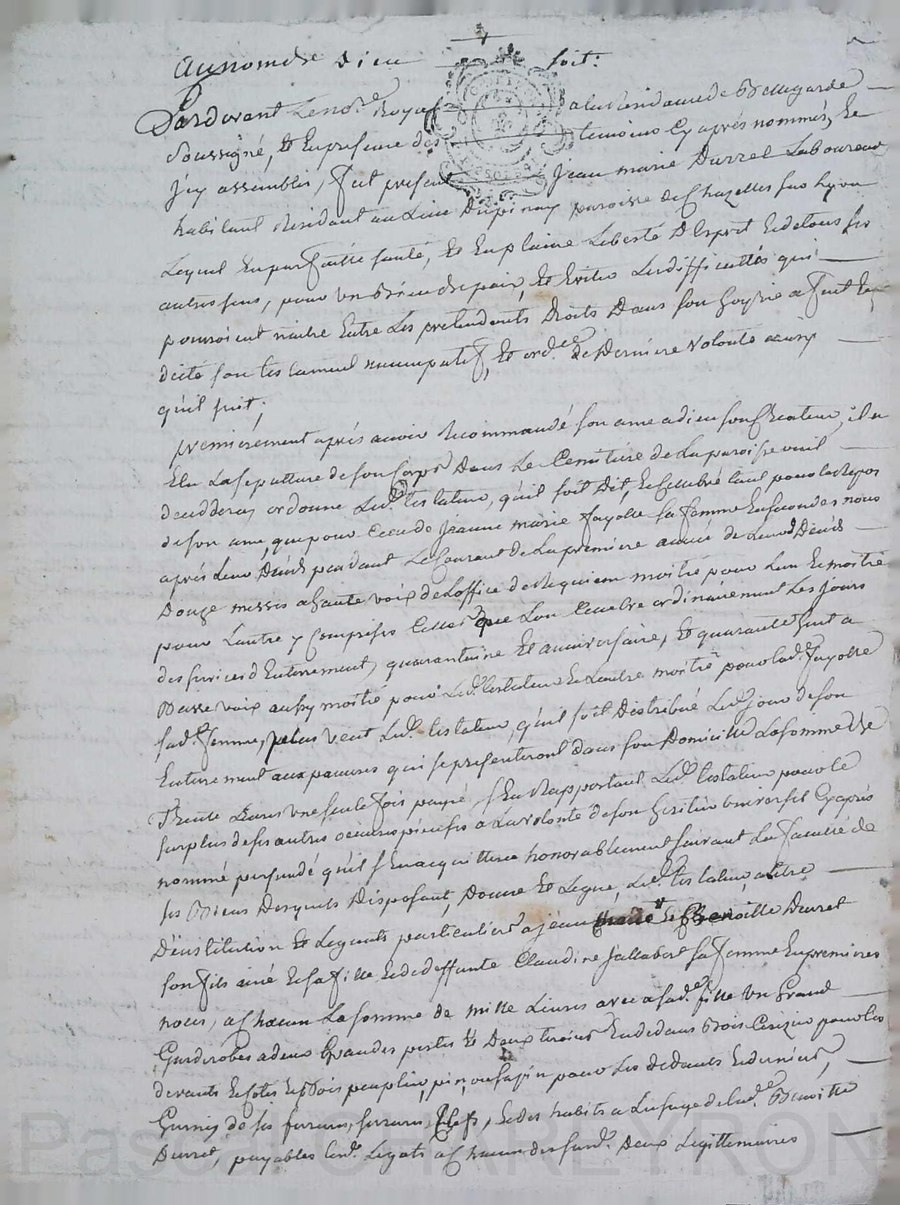 Au nom de Dieu soit.
Pardevant Le no.re Royal a la Residance de Bellegarde
Soussigné, et En presence des temoins Cy après nommés, Et
icy assemblés, fut present Jean marie Durret Laboureur
habitant Residant au Lieu Dupinay paroisse de Chazelles sur Lyon
Lequel En parfaitte santé, Et En plaine Liberté D'Esprit Et de tous ses
autres sens, pour un Bien de paix, Et Eviter Les difficultés qui
pouroient naitre Entre Les pretendants Droits Dans son hoyrie a fait Et
dicté son testament nuncupatif, Et ord.ce de Derniere Volonté ainsy
qu'il suit;
premierement après avoir Recommandé son ame a dieu son Createur, il a
Elu La sepulture de son Corps Dans Le Cemitière de La paroisse ou il
deceddera, ordonne Led.t testateur, qu'il soit Dit, Et Celebré tant pour Le Repos
de son ame, que pour Celuy de Jeanne marie fayolle sa femme En secondes noces
après Leur Décès pendant Le Courant de La première année de Leurd. Décès
Douze messes a haute voix de L'office de Requiem moitié pour L'un Et moitié
pour L'autre y Comprises Celles que L'on Celebre ordinairement Les jours
des services d'Enterrement, quarantaine Et anniversaire, Et quarante huit a
Basse voix aussy moitié pour Led.t testateur Et L'autre moitié pour lad.te fayolle
sad.te femme, plus veut Led.t testateur, qu'il soit Distribué Led.t jour de son
Enterrement aux pauvres qui se presenteront dans son Domicille La somme de
Trente Livres une seule fois payée s'En Rapportant Led.t testateur pour le
surplus de ses autres oeuvres pieuses a La volonté de son heritier universel Cy après
nommé persuadé qu'il s'En acquittera honorablement suivant La faculté de
ses Biens Desquels Disposant, Donne Et Legue, Led.t testateur, a titre
D'institution Et Legats particuliers a Jean Et Benoitte Durret
son fils ainé Et sa fille Et de deffunte Claudine Jallabert sa femme En premieres
noces, a Chacun La somme de mille Livres avec a sad.te fille un Grand
Garderobes a deux Grandes portes Et Deux tiroirs En dedans Bois Cerizier pour les
devants Et Cotés Et Bois peuplier, pin, ou sapin pour Les dedants Et derniers,
Garnis de ses ferrures, serrures, Clefs, Et des habits a L'usage de lad.te Benoitte
Durret, payables Lesd. Legats a Chacun des susd. Deux Legittimaires
Pascal CHAREYRON